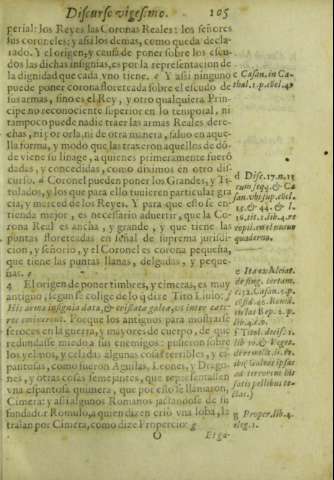 Discurso vigesimo. 105
perial: los Reyes las Coronas Reales: los señores
sus coroneles; y asi los demas, como queda decla-
rado. Y el origen, y causa de poner sobre los escu-
dos las dichas insignias, es por la representacion de
la dignidad que cada vno tiene. e Y asi ninguno
puede poner corona floreteada sobre el escudo de
sus armas, sino es el Rey, y otro qualquiera Prin-
cipe no reconociente superior en lo temporal, ni
tampoco puede nadie traer las armas Reales dere-
chas, ni por orla, ni de otra manera, saluo en aque-
lla forma, y modo que las traxeron aquellos de dó-
de viene su linage, a quienes primeramente fueró
dadas, y concedidas, como diximos en otro dis-
curso. d Coronel pueden poner los Grandes, y Ti-
tulados, y los que para ello tuuieren particular gra
cia, y merced de los Reyes. Y para que esto se en-
tienda mejor, es necessario aduertir, que la Co-
rona Real es ancha, y grande, y que tiene las
puntas floreteadas en señal de suprema jurisdi-
cion, y señorio, y el Coronel es corona pequeña,
que tiene las puntas llanas, delgadas, y peque-
ñas.
4 El origen de poner timbres, y cimeras, es muy
antiguo, segun se colige de lo q̃ dize Tito Liuio:
His arma insignia data, & cristatæ galeæ, vt inter cæte-
ros eminerent. Porque los antiguos para mostrarse
feroces en la guerra, y mayores de cuerpo, de que
redundasse miedo a sus enemigos: pusieron sobre
los yelmos, y celadas algunas cosas terribles, y es-
pantosas, como fueron Aguilas, Leones, y Drago-
nes, y otras cosas semejantes, que representassen
vna espantosa quimera, que por esto se llamaron
Cimera: y asi algunos Romanos jactandose de su
fundador Romulo, a quien dizen crió vna loba, la
traian por Cimera, como dize Propercio: g
O Erga-
c Casan. in Ca-
thal. 1. p. cōcl. 4.
d Disc. 17. n. 13
cum seqq. & Ca
san. vbi sup. cōcl.
15. & 44. & l.
16. tit. 1. lib. 4. re
copil.
quaderno.
e Ita ex Alciat.
de sing. certam.
Casan. 1. p.
cōcl.
lib. 4.
f Titul. deci. 1.
lib. 10. & Veget.
de re milit. li.
ibi; Galeas ipsas
ad terrorem
g Proper. lib. 4.
eleg. 1.